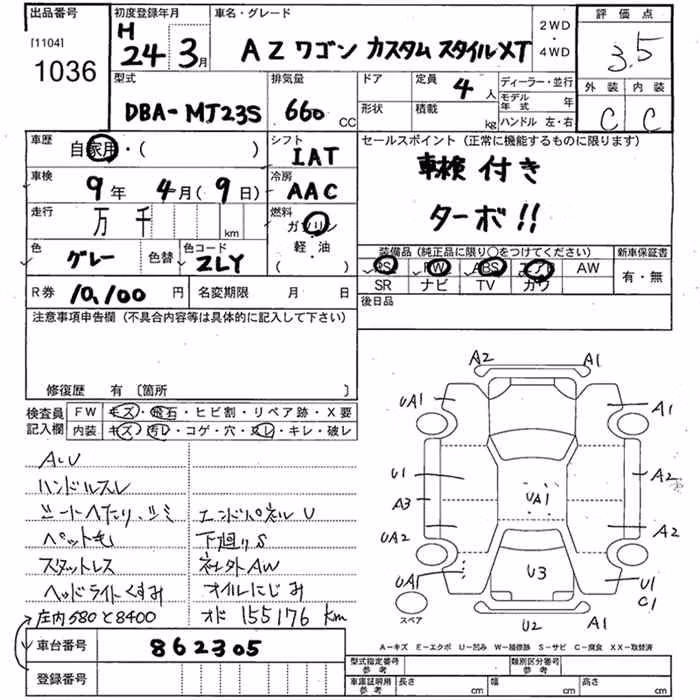 出品番号 初度登録年月 車名・グレード 2WD ・ 4WD 評価点
[1104]
1036
H 24年 3月 AZワゴン カスタムスタイルXT 3.5
型式 排気量 ドア 定員 4人 ディーラー・並行 外装 内装
DBA-MJ23S 660 CC 形状 積載 kg モデル年式 年 C C
ハンドル 左・右
車歴 自家用・( ) シフト IAT セールスポイント(正常に機能するものに限ります)
車検 9年 4月(9日) 冷房 AAC 車検付き
走行 万 千 km 燃料 ガソリン 軽・油 ( ) ターボ!!
色 グレー 色替 色コード ZLY 装備品(純正品に限り○をつけてください) 新車保証書
PS PW ABS エアB AW 有・無
R券 10,100円 名変期限 月 日 SR ナビ TV カワ
注意事項申告欄(不具合内容等は具体的に記入して下さい) 後日品
修復歴 有 〔箇所 〕
検査員記入欄 FW キズ・飛石・ヒビ割・リペア跡・X要
内装 キズ・汚レ・コゲ・穴・スレ・キレ・破レ
A~U
ハンドルスレ
シートヘたり、シミ エンドパネルU
ペット毛 下廻りS
スタットレス 社外AW
ヘッドライトくすみ オイルにじみ
庄内580と8400 オド 155176 km
車台番号 862305
登録番号
A2 A1
UA1 A1
U1 A2
A3 UA1
UA2 A2
UA1 U3 U1 C1
スペア U2 A1
A-キズ E-エクボ U-凹み W-補修跡 S-サビ C-腐食 XX-取替済
型式指定番号 参考 類別区分番号 参考
車庫証明用 参考 長さ cm 幅 cm 高さ cm